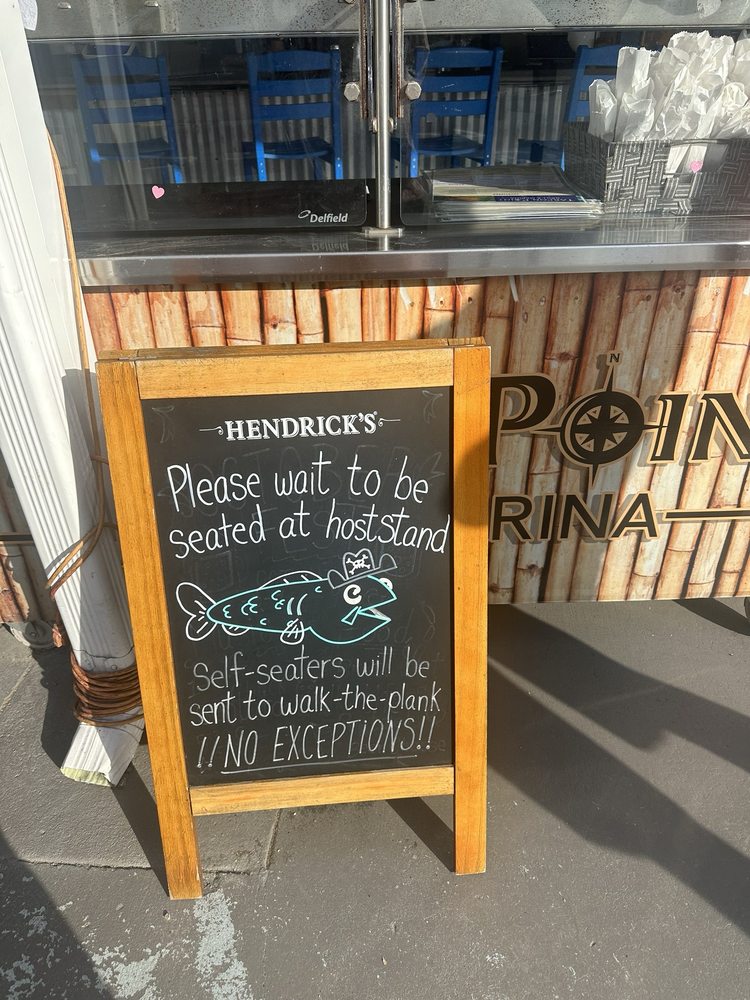 Delfield
HENDRICK'S®
Please wait to be
seated at hoststand
Self-seaters will be
sent to walk-the-plank
!!NO EXCEPTIONS!!
N
POIN
RINA